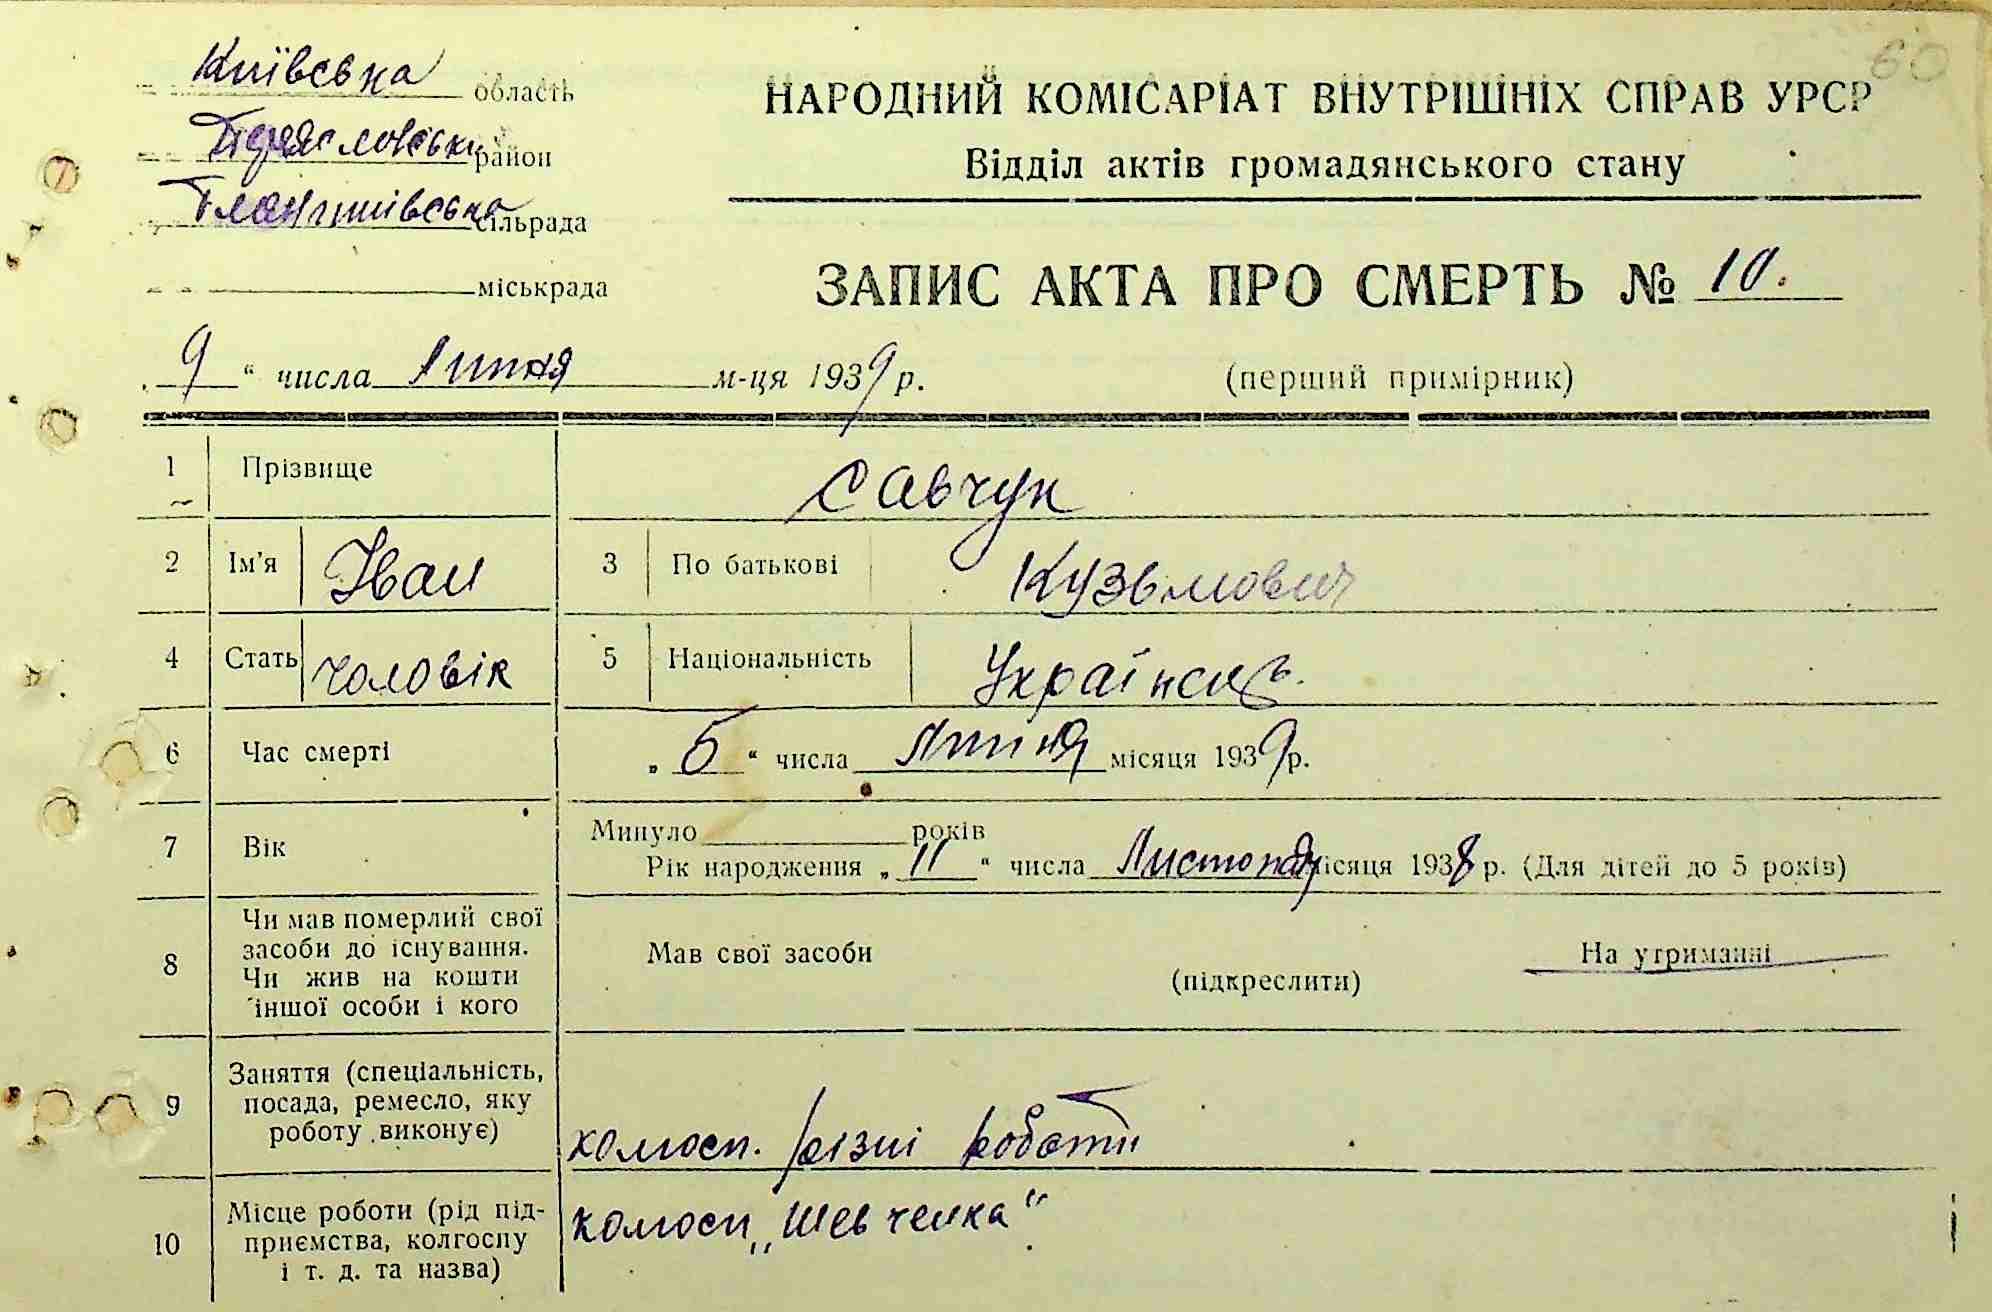 60
Київська область
НАРОДНИЙ КОМІСАРІАТ ВНУТРІШНІХ СПРАВ УРСР
Переяславський район
Відділ актів громадянського стану
сільрада
міськрада
ЗАПИС АКТА ПРО СМЕРТЬ № 10.
9 “ числа липня м-ця 1939 р.
(перший примірник)
1 Прізвище Савчук
2 Ім’я Іван 3 По батькові Кузьмович
4 Стать чоловік 5 Національність Українець.
6 Час смерті „ 5 “ числа липня місяця 1939 р.
7 Вік Минуло років
Рік народження „ 11 “ числа Листопаду місяця 1938 р. (Для дітей до 5 років)
8 Чи мав померлий свої
засоби до існування.
Чи жив на кошти
іншої особи і кого
Мав свої засоби
(підкреслити)
На утриманні
9 Заняття (спеціальність,
посада, ремесло, яку
роботу виконує)
колгосп. різні роботи
10 Місце роботи (рід під-
приємства, колгоспу
і т. д. та назва)
колгосп „Шевченка“